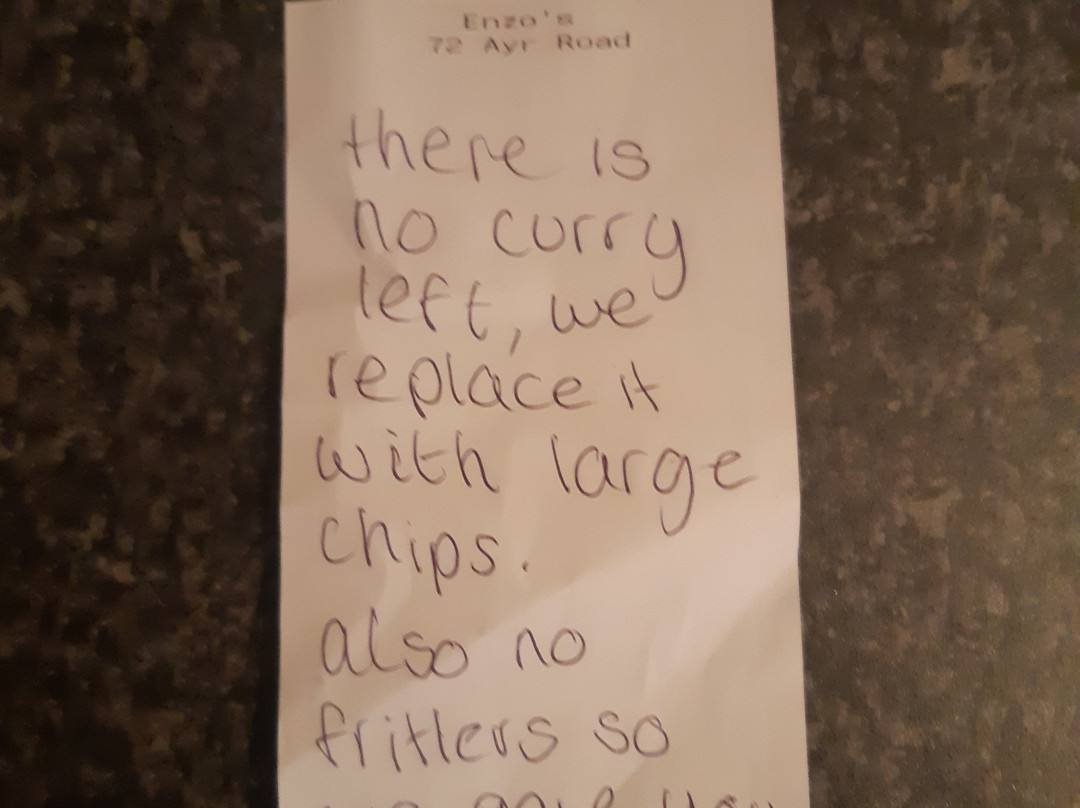 Enzo's
72 Ayr Road
there is
no curry
left, we
replace it
with large
chips.
also no
fritters so
we gave you